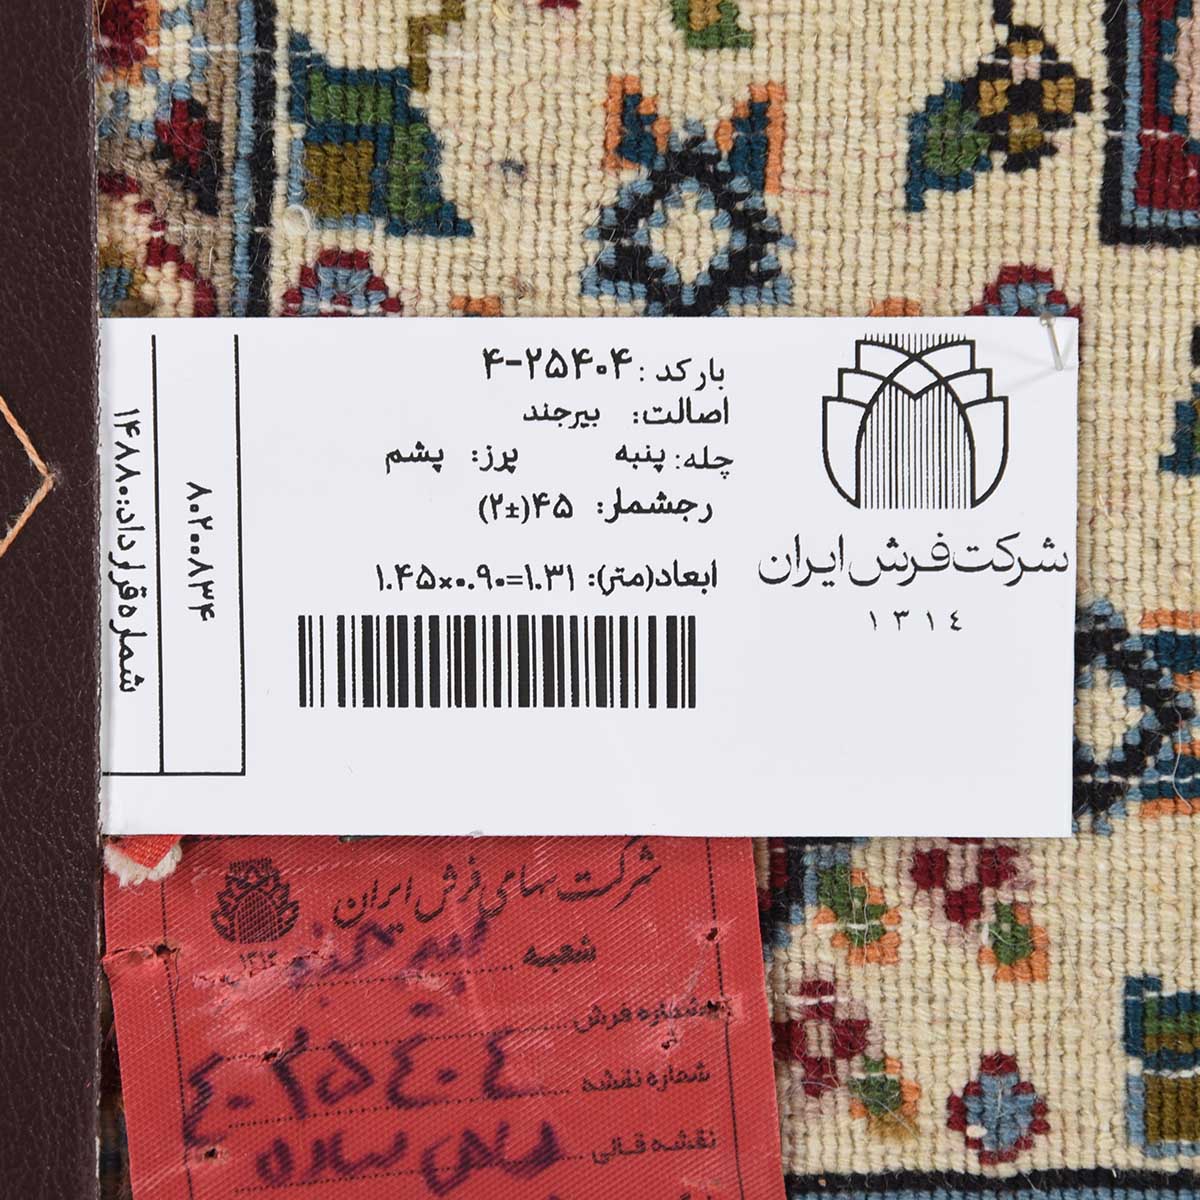 بارکد: ۴-۲۵۴۰۴
اصالت: بیرجند
چله: پنبه پرز: پشم
رجشمار: ۴۵(±۲)
ابعاد(متر): ۱.۳۱=۰.۹۰×۱.۴۵
شرکت فرش ایران
۱۳۱۴
شماره قرارداد: ۱۴۸۸۰
۸۰۲۰۰۸۳۴
شرکت سهامی فرش ایران
۱۳۱۴
شعبه بیرجند
شماره فرش
شماره نقشه
نقشه قالی